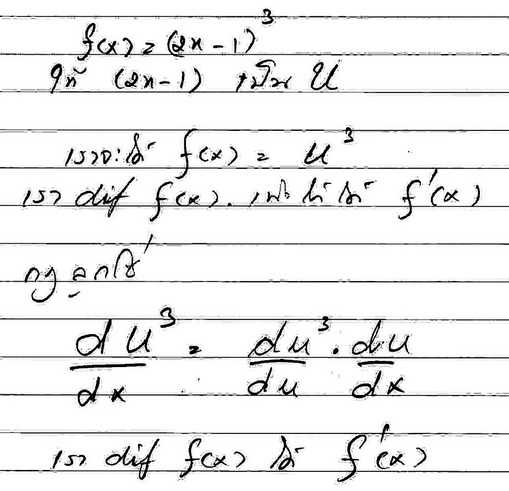 f(x) = (2x-1)³
ให้ (2x-1) เป็น u
เราจะได้ f(x) = u³
เรา dif f(x). เพื่อให้ได้ f'(x)
กฎลูกโซ่
du³/dx = du³/du · du/dx
เรา dif f(x) ได้ f'(x)